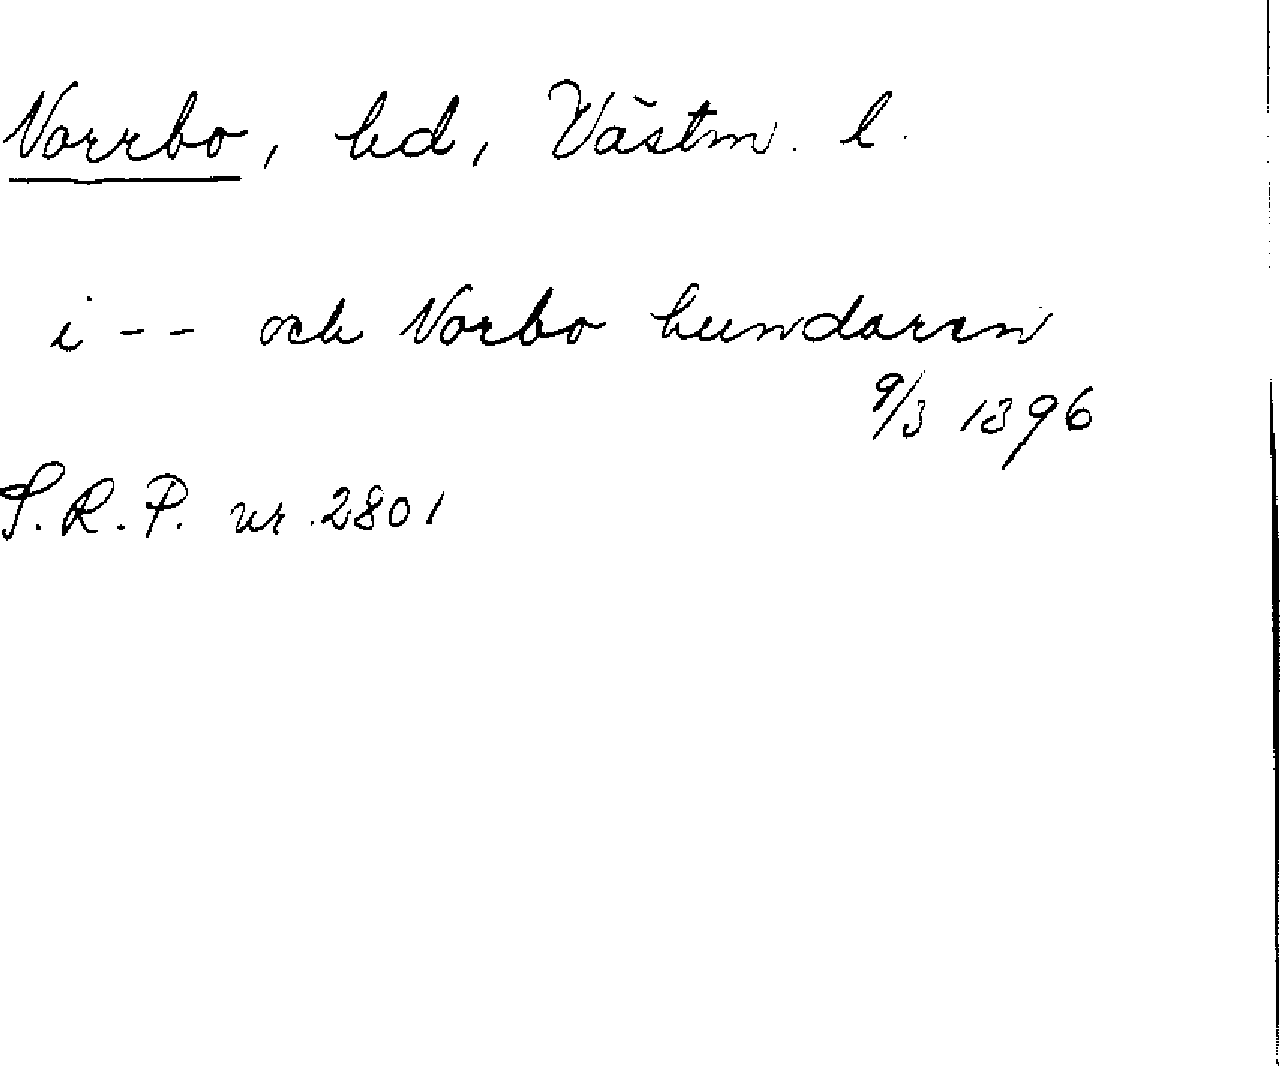 Norrbo, hd, Västm. l.
i -- och Norbo hundaren
9/3 1396
S.R.P. nr. 2801